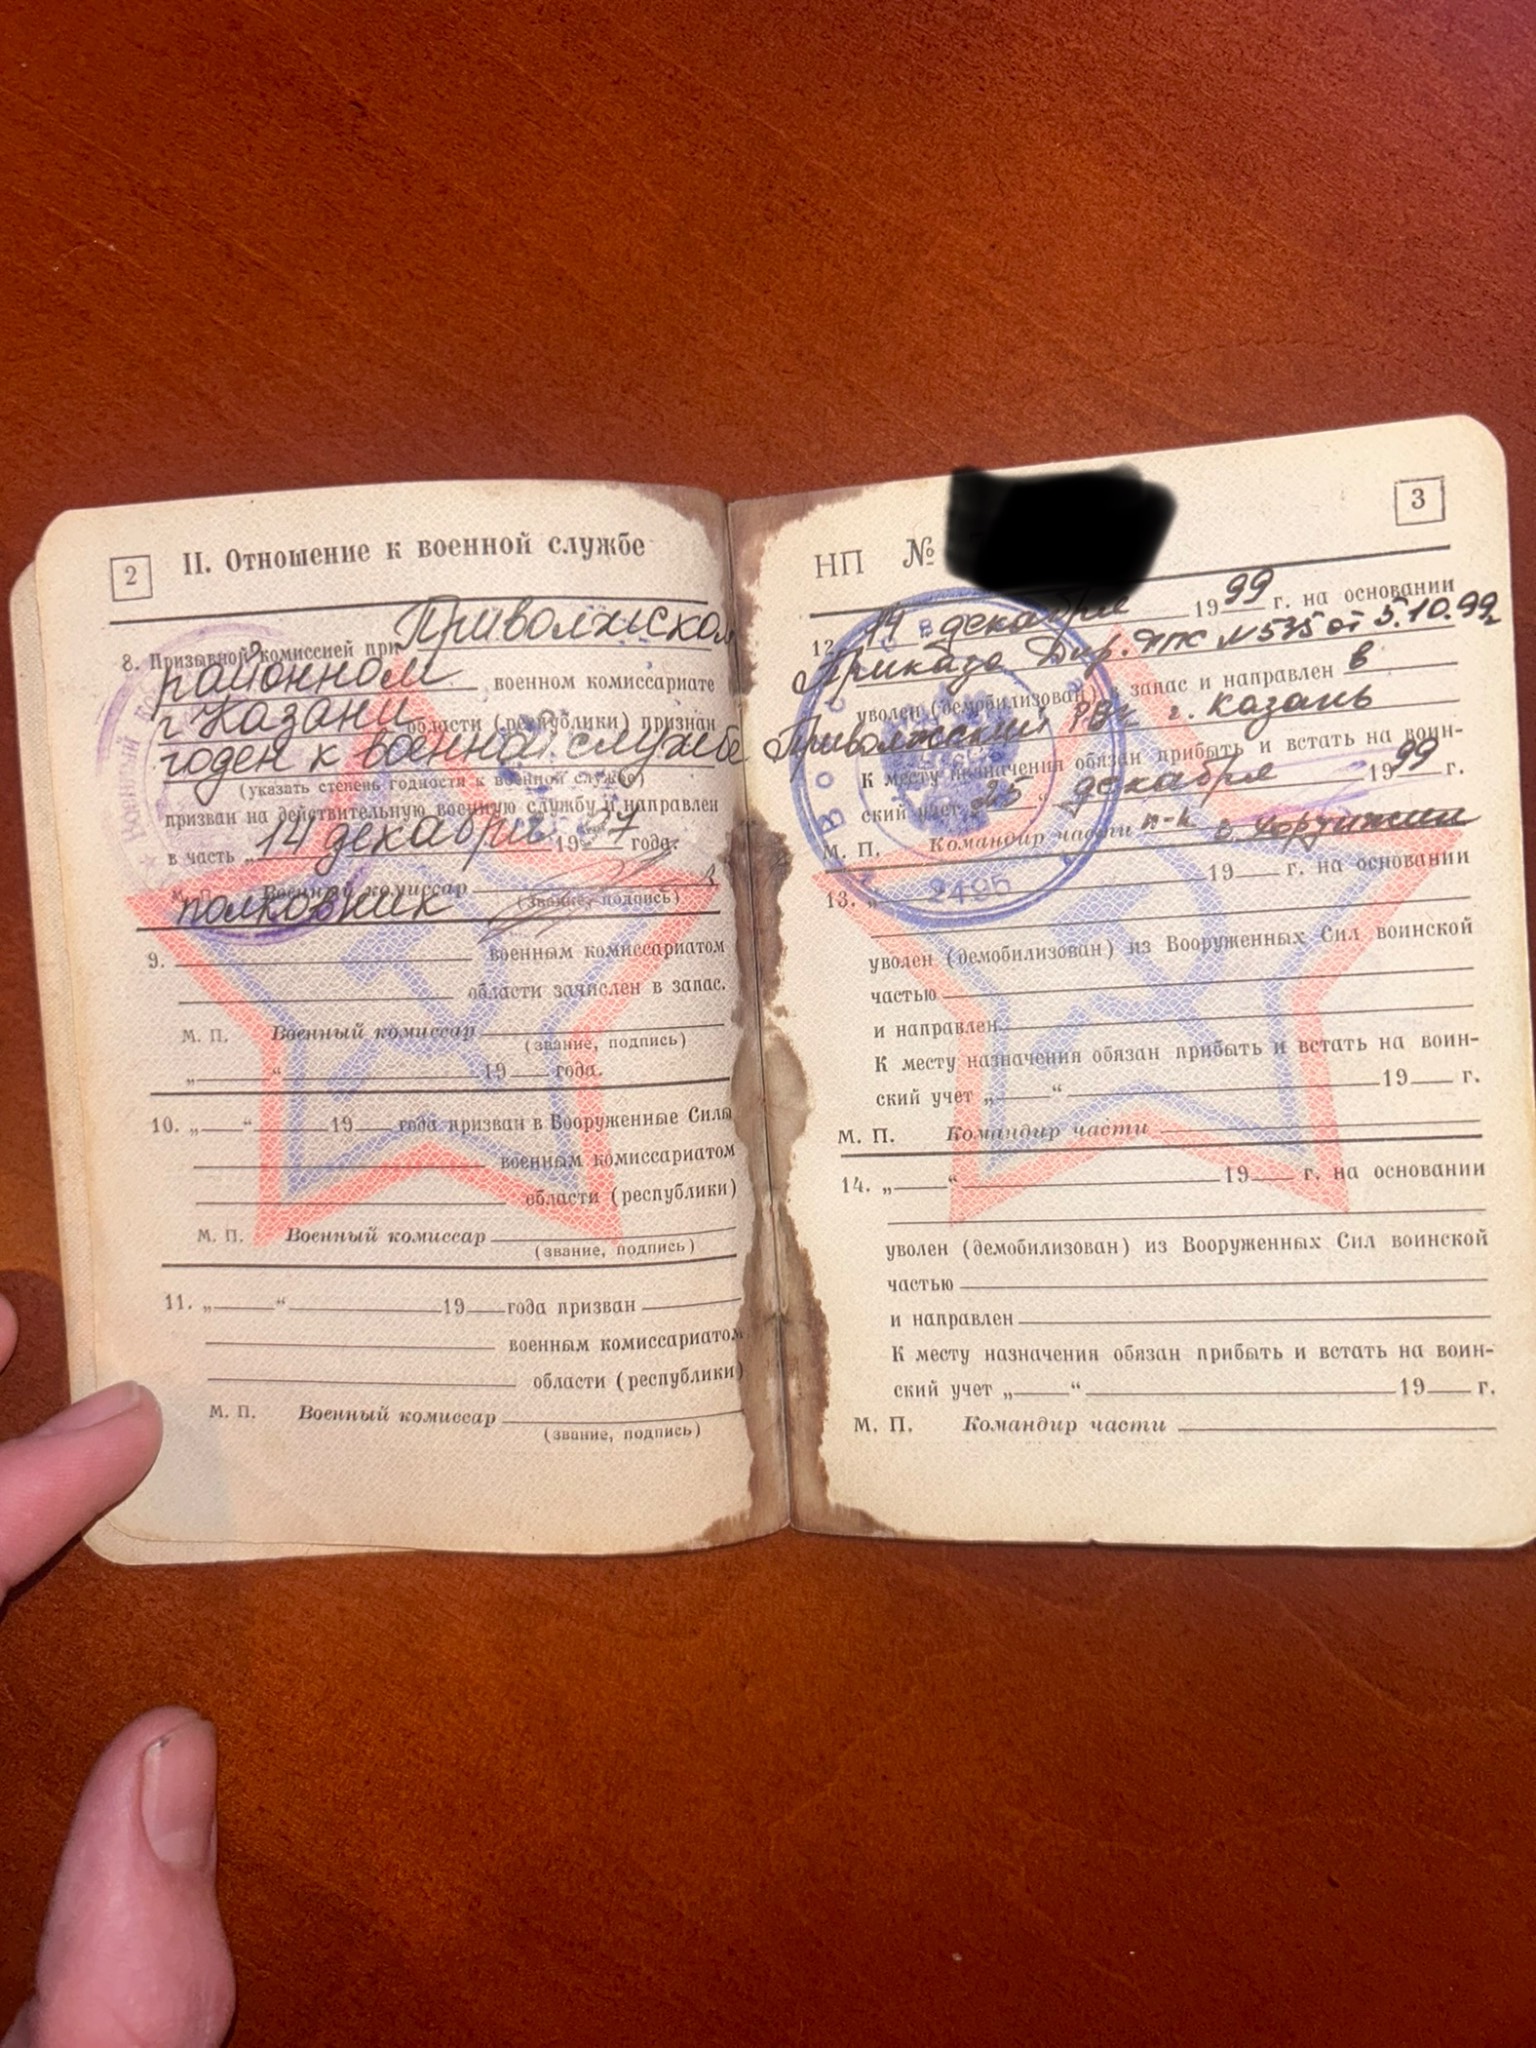 2
II. Отношение к военной службе
8. Призывной комиссией при Приволжском
районном военном комиссариате
г. Казани области (республики) признан
годен к военной службе
(указать степень годности к военной службе)
призван на действительную военную службу и направлен
в часть „14 декабря 1997 года.
М. П. Военный комиссар
полковник (звание, подпись)
9. военным комиссариатом
области зачислен в запас.
М. П. Военный комиссар
(звание, подпись)
„ “ 19 года.
10. „ “ 19 года призван в Вооруженные Силы
военным комиссариатом
области (республики)
М. П. Военный комиссар
(звание, подпись)
11. „ “ 19 года призван
военным комиссариатом
области (республики)
М. П. Военный комиссар
(звание, подпись)
3
НП №
12. 14 декабря 1999 г. на основании
Приказа Дир. ФПС №535 от 5.10.99г
уволен (демобилизован) в запас и направлен в
Приволжский РВК г. Казань
К месту назначения обязан прибыть и встать на воин-
ский учет „25“ декабря 1999 г.
М. П. Командир части п-к
2495
13. „ 19 г. на основании
уволен (демобилизован) из Вооруженных Сил воинской
частью
и направлен
К месту назначения обязан прибыть и встать на воин-
ский учет „ “ 19 г.
М. П. Командир части
14. „ “ 19 г. на основании
уволен (демобилизован) из Вооруженных Сил воинской
частью
и направлен
К месту назначения обязан прибыть и встать на воин-
ский учет „ “ 19 г.
М. П. Командир части